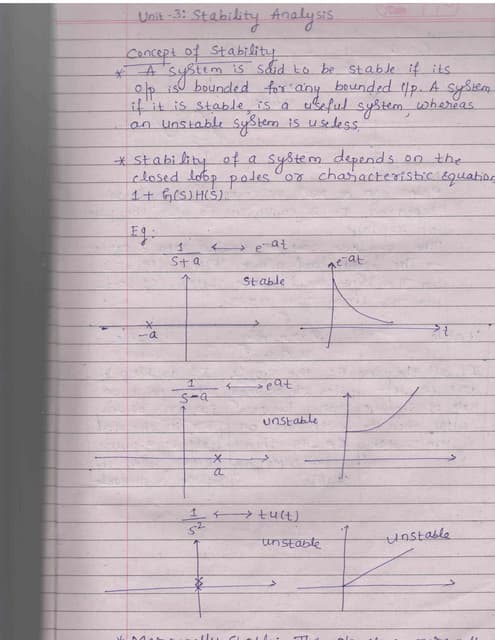 Unit-3: Stability Analysis
Concept of Stability
* A system is said to be stable if its
o/p is bounded for any bounded i/p. A system
if it is stable, is a useful system, whereas
an unstable system is useless.
* Stability of a system depends on the
closed loop poles or characteristic equation
1 + G(s)H(s)
Eg:
1/(s+a) ⟷ e^-at
stable
e^-at
-a
t
1/(s-a) ⟷ e^at
unstable
a
1/s² ⟷ tu(t)
unstable
unstable